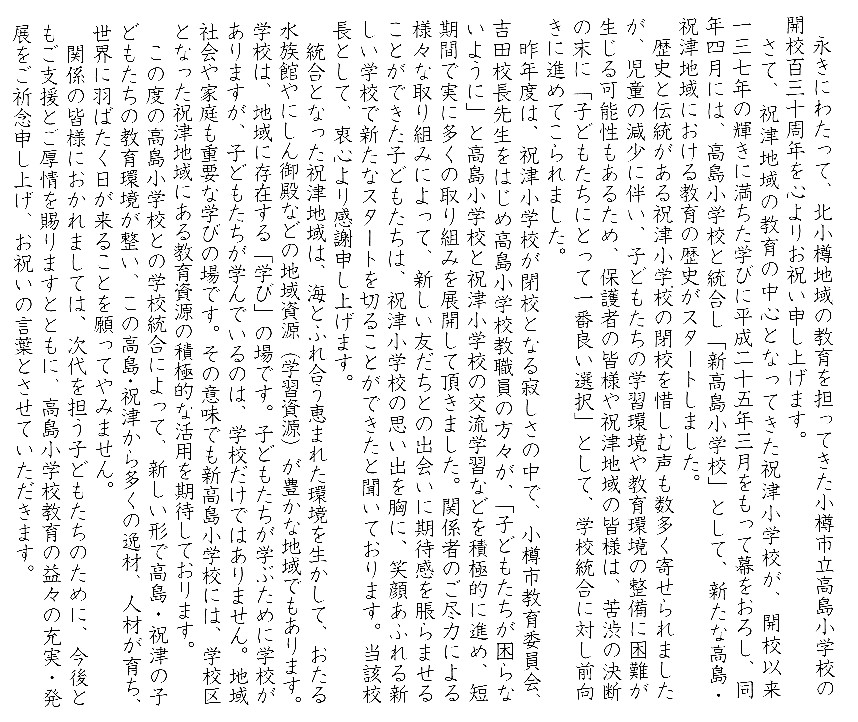 永きにわたって、北小樽地域の教育を担ってきた小樽市立高島小学校の
開校百三十周年を心よりお祝い申し上げます。
さて、祝津地域の教育の中心となってきた祝津小学校が、開校以来
一三七年の輝きに満ちた学びに平成二十五年三月をもって幕をおろし、同
年四月には、高島小学校と統合し「新高島小学校」として、新たな高島・
祝津地域における教育の歴史がスタートしました。
歴史と伝統がある祝津小学校の閉校を惜しむ声も数多く寄せられました
が、児童の減少に伴い、子どもたちの学習環境や教育環境の整備に困難が
生じる可能性もあるため、保護者の皆様や祝津地域の皆様は、苦渋の決断
の末に「子どもたちにとって一番良い選択」として、学校統合に対し前向
きに進めてこられました。
昨年度は、祝津小学校が閉校となる寂しさの中で、小樽市教育委員会、
吉田校長先生をはじめ高島小学校教職員の方々が、「子どもたちが困らな
いように」と高島小学校と祝津小学校の交流学習などを積極的に進め、短
期間で実に多くの取り組みを展開して頂きました。関係者のご尽力による
様々な取り組みによって、新しい友だちとの出会いに期待感を脹らませる
ことができた子どもたちは、祝津小学校の思い出を胸に、笑顔あふれる新
しい学校で新たなスタートを切ることができたと聞いております。当該校
長として、衷心より感謝申し上げます。
統合となった祝津地域は、海とふれ合う恵まれた環境を生かして、おたる
水族館やにしん御殿などの地域資源（学習資源）が豊かな地域でもあります。
学校は、地域に存在する「学び」の場です。子どもたちが学ぶために学校が
ありますが、子どもたちが学んでいるのは、学校だけではありません。地域
社会や家庭も重要な学びの場です。その意味でも新高島小学校には、学校区
となった祝津地域にある教育資源の積極的な活用を期待しております。
この度の高島小学校との学校統合によって、新しい形で高島・祝津の子
どもたちの教育環境が整い、この高島・祝津から多くの逸材、人材が育ち、
世界に羽ばたく日が来ることを願ってやみません。
関係の皆様におかれましては、次代を担う子どもたちのために、今後と
もご支援とご厚情を賜りますとともに、高島小学校教育の益々の充実・発
展をご祈念申し上げ、お祝いの言葉とさせていただきます。